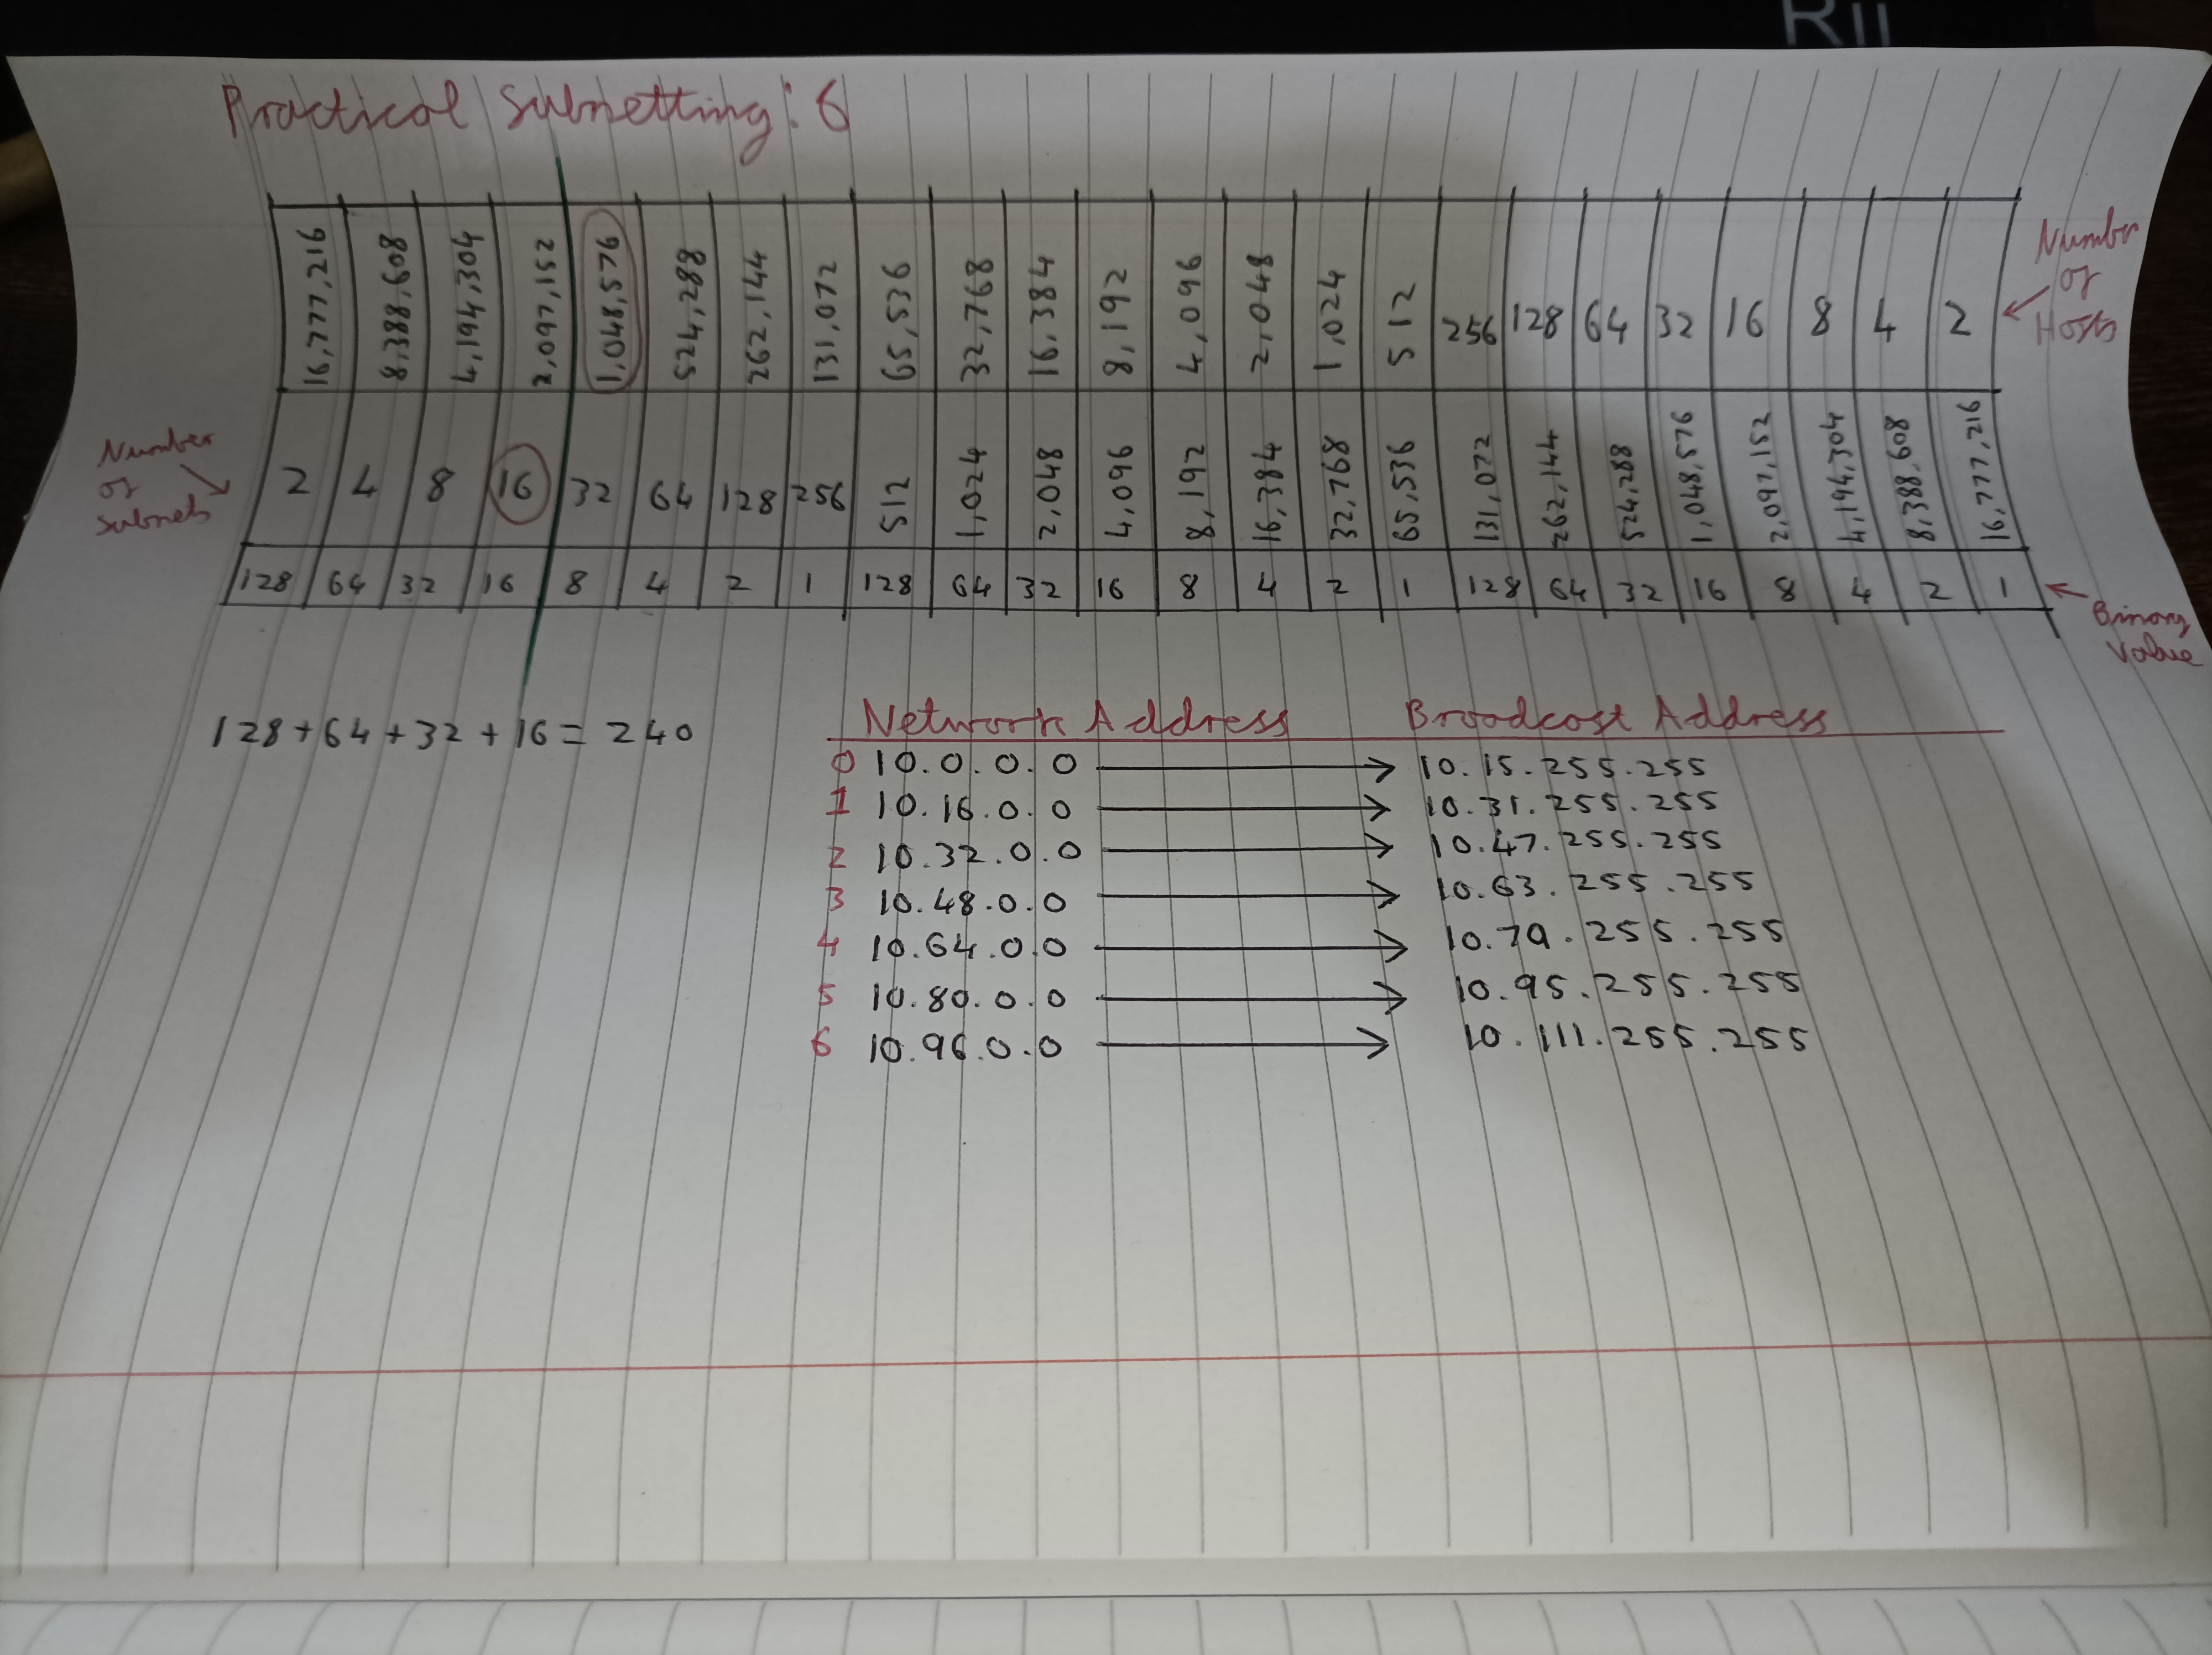 Rii
Practical Subnetting: 6
16,777,216 8,388,608 4,194,304 2,097,152 1,048,576 524,288 262,144 131,072 65,536 32,768 16,384 8,192 4,096 2,048 1,024 512 256 128 64 32 16 8 4 2
Number
of
Hosts
Number
of
Subnets
2 4 8 16 32 64 128 256 512 1,024 2,048 4,096 8,192 16,384 32,768 65,536 131,072 262,144 524,288 1,048,576 2,097,152 4,194,304 8,388,608 16,777,216
128 64 32 16 8 4 2 1 128 64 32 16 8 4 2 1 128 64 32 16 8 4 2 1
Binary
Value
128+64+32+16=240
Network Address Broadcast Address
0 10.0.0.0 → 10.15.255.255
1 10.16.0.0 → 10.31.255.255
2 10.32.0.0 → 10.47.255.255
3 10.48.0.0 → 10.63.255.255
4 10.64.0.0 → 10.79.255.255
5 10.80.0.0 → 10.95.255.255
6 10.96.0.0 → 10.111.255.255